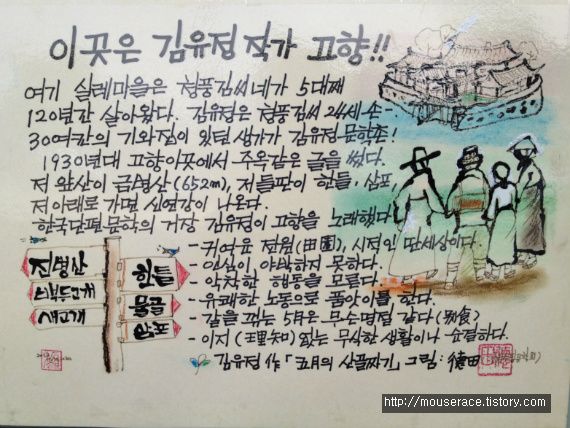 이곳은 김유정 작가 고향!!
여기 실레마을은 청풍김씨네가 5대째
120년간 살아왔다. 김유정은 청풍김씨 24세손-.
30여칸의 기와집이 있던 생가가 김유정 문학촌!
1930년대 고향 이곳에서 주옥같은 글을 썼다.
저 앞산이 금병산(652m), 저 들판이 한들, 삼포
저 아래로 가면 시연강이 나온다.
한국단편문학의 거장 김유정이 고향을 노래했다
- 귀여운 전원(田園), 시적인 딴세상이다.
- 인심이 야박하지 못하다.
- 악착한 행동을 모른다.
- 유쾌한 노동으로 품앗이를 한다.
- 갈을 꺾는 5月은 무슨명절 같다
- 이지(理知) 없는 무식한 생활이나 순결하다.
진병산
새고개
한들
물골
삼포
김유정 作「五月의 산골짜기」그림: 德田
http://mouserace.tistory.com